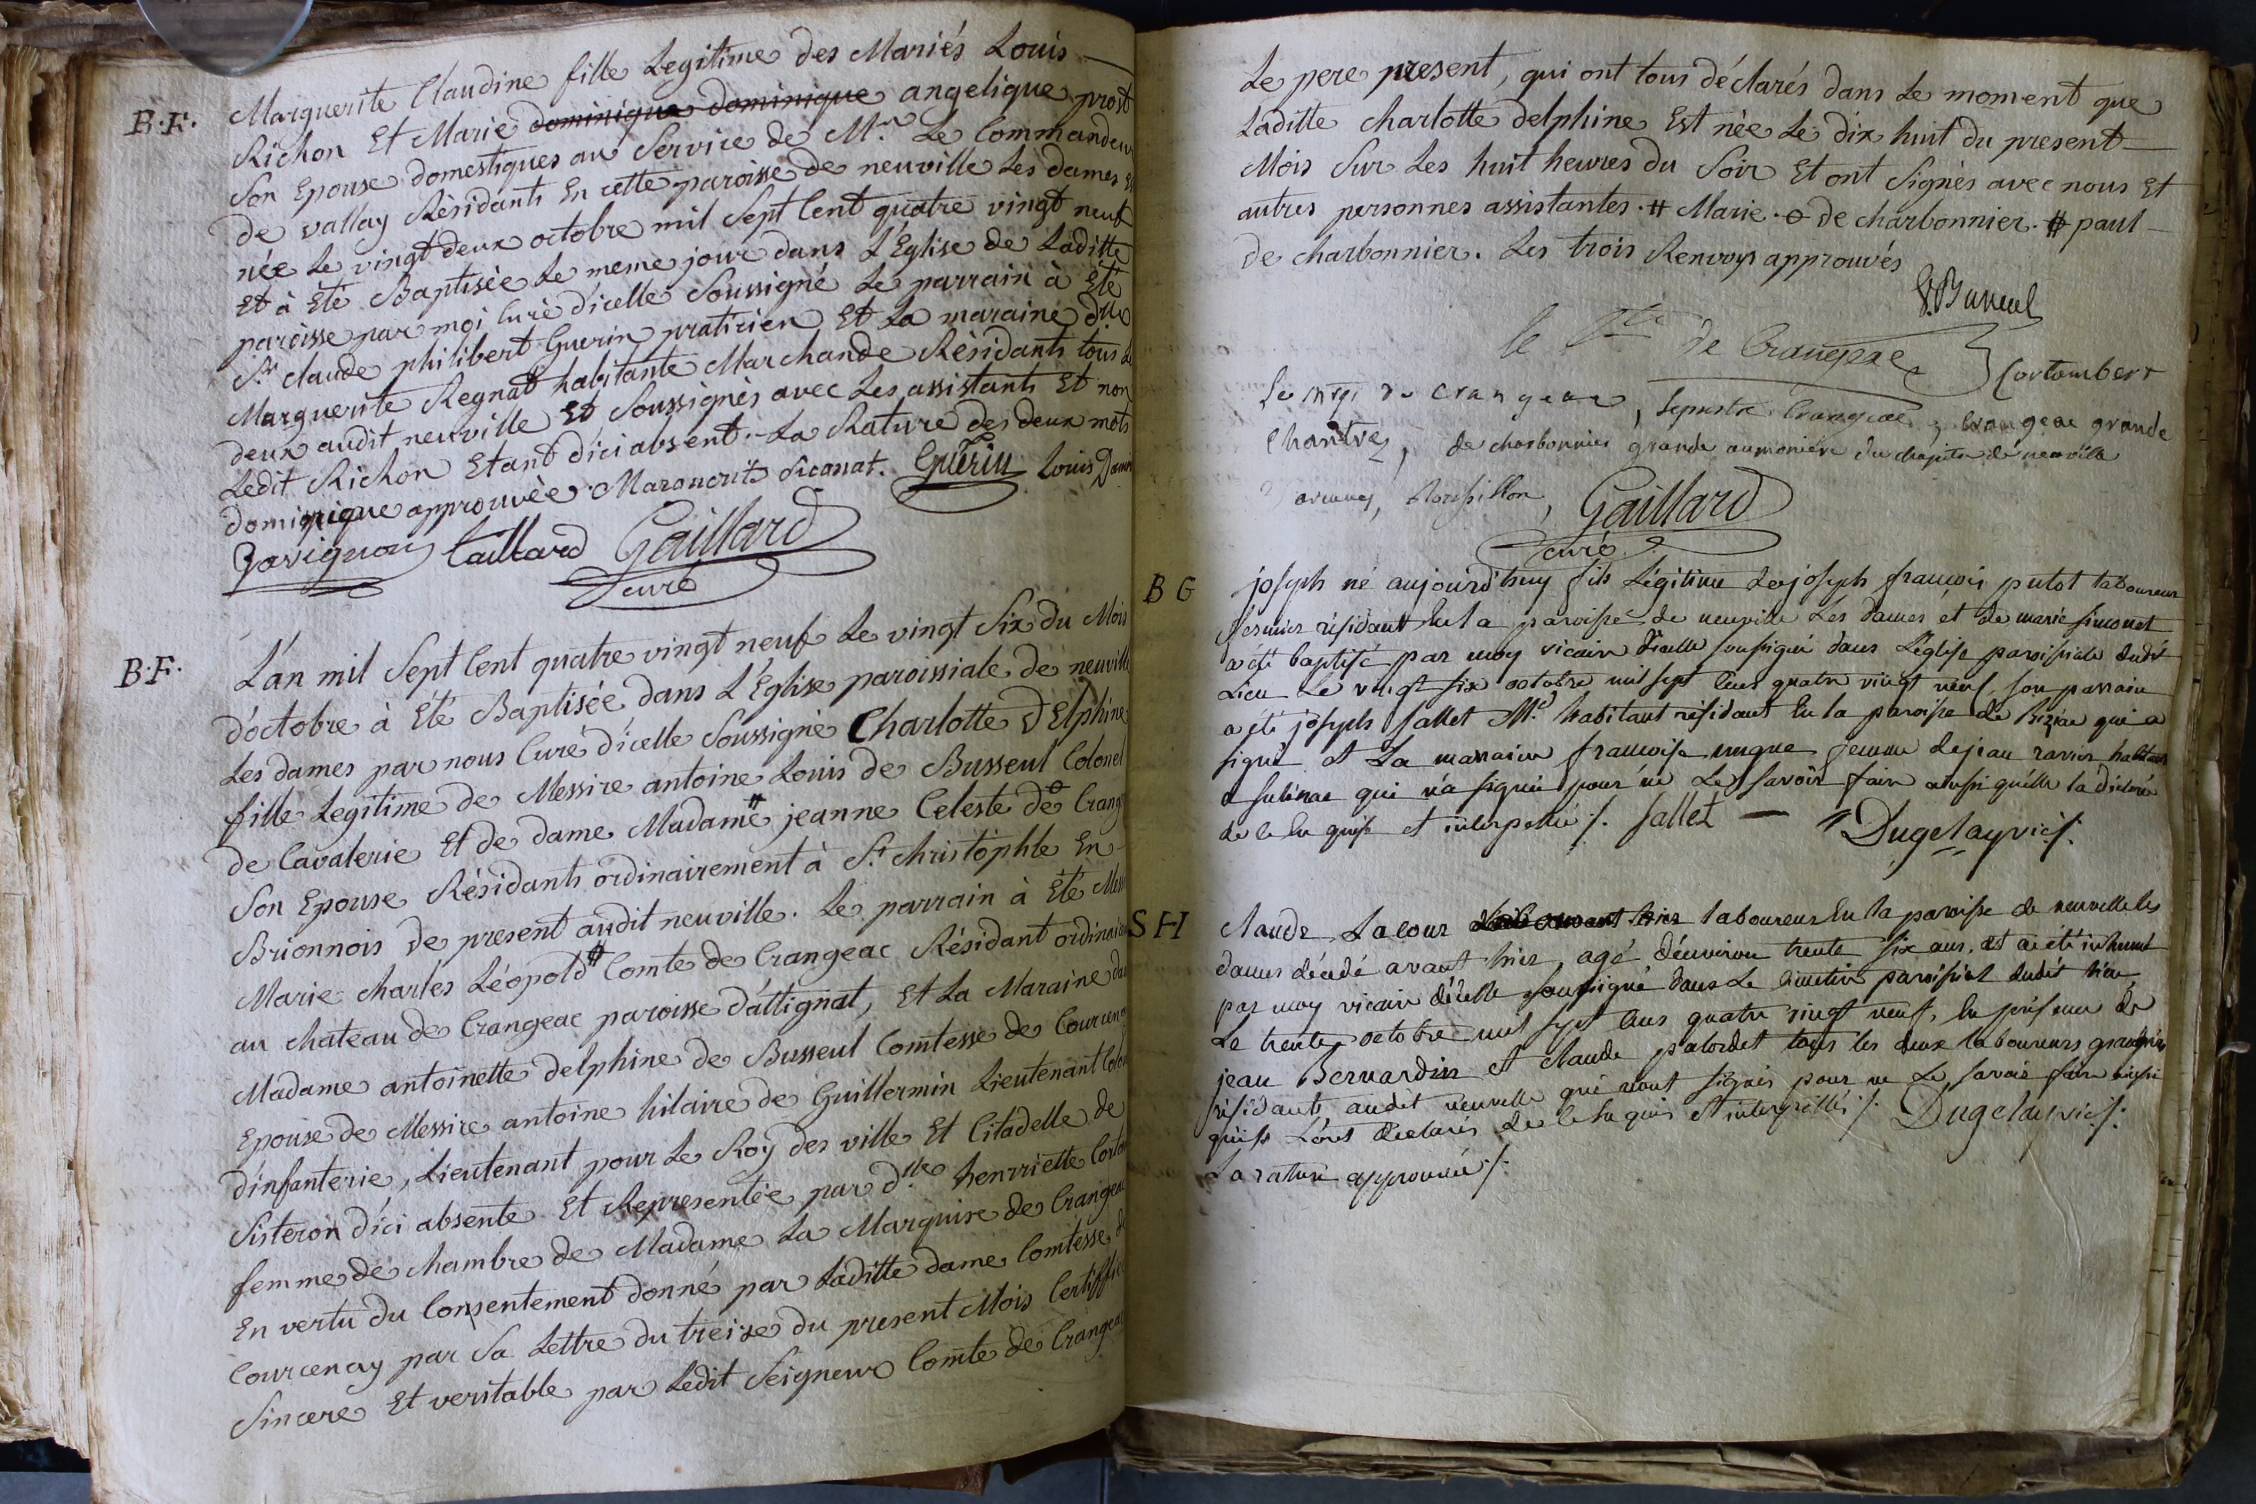 B.F.
Marguerite Claudine fille Legitime des Mariés Louis
Richon Et Marie dominique dominique angelique prost
Son Epouse domestiques au Service de M.r Le Commandeur
de vallay Résidants En cette paroisse de neuville Les dames Et
née Le vingt deux octobre mil Sept Cent quatre vingt neuf
Et à Eté Baptisée Le meme jour dans L'Eglise de Laditte
paroisse par moi Curé d'icelle Soussigné Le parrain à Eté
S.r Claude philibert Guerin praticien Et La maraine d.lle
Marguerite Regnat habitante Marchande Résidants tous Les
deux audit neuville Et Soussignés avec Les assistants Et non
Ledit Richon Etant d'ici absent. La Rature des deux mots
dominique approuvée. Guérin Louis
Gaillard
curé
B.F.
L'an mil Sept Cent quatre vingt neuf Le vingt Six du Mois
d'octobre à Eté Baptisée dans L'Eglise paroissiale de neuville
Les dames par nous Curé d'icelle Soussigné Charlotte dElphine
fille Legitime de Messire antoine Louis de Busseul Colonel
de Cavalerie Et de dame Madame # jeanne Celeste de Crangeac
Son Epouse Résidants ordinairement à S.t Christophle En
Brionnois de present audit neuville. Le parrain à Eté Messire
Marie Charles Léopold # Comte de Crangeac Résidant ordinairement
au chateau de Crangeac paroisse d'attignat, Et La Maraine dame
Madame antoinette delphine de Busseul Comtesse de Courcenay
Epouse de Messire antoine hilaire de Guillermin Lieutenant Colonel
d'infanterie, Lieutenant pour Le Roy des ville Et Citadelle de
Sisteron d'ici absente Et Representée par d.lle henriette Cortambert
femme de chambre de Madame La Marquise de Crangeac
En vertu du Consentement donné par Laditte dame Comtesse de
Courcenay par Sa Lettre du treize du present Mois Certiffiée
Sincere Et veritable par Ledit Seigneur Comte de Crangeac
Le pere present, qui ont tous déclarés dans Le moment que
Laditte Charlotte delphine Est née Le dix huit du present
Mois Sur Les huit heures du Soir Et ont Signés avec nous Et
autres personnes assistantes. # Marie. o de charbonnier. # paul
de charbonnier. Les trois Renvoys approuvés
Busseul
le Cte de Crangeac Cortambert
Le mqi de crangeac, Crangeac, crangeac grande
Chantre, de charbonnier grande aumoniere du chapitre de neuville
Gaillard
curé
B G
joseph né aujourd'huy fils Légitime de joseph françois putot laboureur
fermier résidant En la paroisse de neuville Les dames et de marie simonet
a été baptisé par moy vicaire d'icelle soussigné dans L'église paroissiale dudit
Lieu Le vingt six octobre mil sept Cens quatre vingt neuf, son parrain
a été joseph sallet M.d habitant résidant En la paroisse de Biziac qui a
signé et La marraine françoise femme de jean habitant
a sulinac qui n'a signé pour ne Le savoir faire ainsi quelle la déclaré
de ce Enquise et interpellée ./. sallet — Dugelay vic ./.
S H
claude Lacour laboureur En la paroisse de neuville les
dames décédé avant hier, agé d'environ trente six ans, et a été inhumé
par moy vicaire d'icelle soussigné dans Le cimetière paroissial dudit Lieu
Le trente octobre mil sept Cens quatre vingt neuf, En présence de
jean Bernardin et claude palordet tous les deux laboureurs grangers
résidants audit neuville qui n'ont signés pour ne Le savoir faire ainsi
quils L'ont déclarés de ce Enquis et interpellés ./. Dugelay vic ./.
La rature approuvée ./.